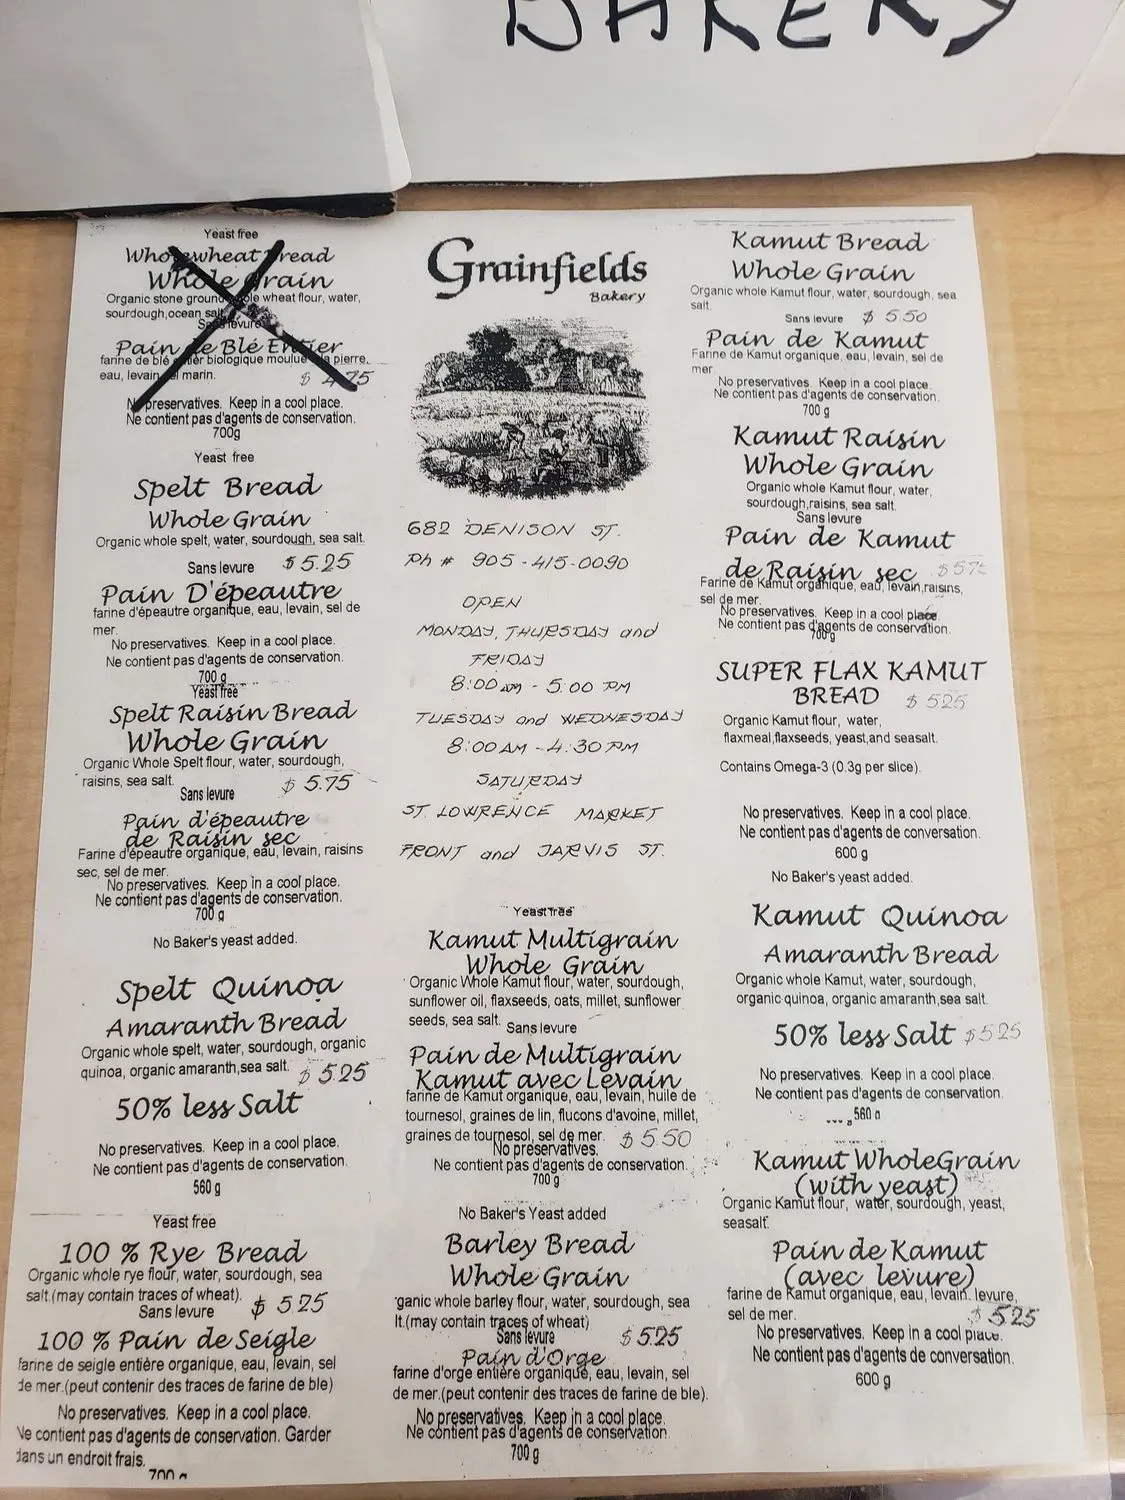 BAKERY
Yeast free
Wholewheat Bread
Whole Grain
Organic stone ground whole wheat flour, water,
sourdough,ocean salt
Sans levure
Pain de Blé Entier
farine de blé entier biologique moulue la pierre,
eau, levain, marin.
$ 4.75
No preservatives. Keep in a cool place.
Ne contient pas d'agents de conservation.
700g
Yeast free
Spelt Bread
Whole Grain
Organic whole spelt, water, sourdough, sea salt.
Sans levure $5.25
Pain D'épeautre
farine d'épeautre organique, eau, levain, sel de
mer.
No preservatives. Keep in a cool place.
Ne contient pas d'agents de conservation.
700 g
Yeast free
Spelt Raisin Bread
Whole Grain
Organic Whole Spelt flour, water, sourdough,
raisins, sea salt.
Sans levure $ 5.75
Pain d'épeautre
de Raisin sec
Farine d'épeautre organique, eau, levain, raisins
sec, sel de mer.
No preservatives. Keep in a cool place.
Ne contient pas d'agents de conservation.
700 g
No Baker's yeast added.
Spelt Quinoa
Amaranth Bread
Organic whole spelt, water, sourdough, organic
quinoa, organic amaranth,sea salt. $ 5.25
50% less Salt
No preservatives. Keep in a cool place.
Ne contient pas d'agents de conservation.
560 g
Yeast free
100 % Rye Bread
Organic whole rye flour, water, sourdough, sea
salt.(may contain traces of wheat).
Sans levure $ 5.25
100 % Pain de Seigle
farine de seigle entière organique, eau, levain, sel
de mer.(peut contenir des traces de farine de ble)
No preservatives. Keep in a cool place.
Ne contient pas d'agents de conservation. Garder
dans un endroit frais.
700 g
Grainfields
Bakery
682 DENISON ST.
Ph # 905-415-0090
OPEN
MONDAY, THURSDAY and
FRIDAY
8:00 AM - 5:00 PM
TUESDAY and WEDNESDAY
8:00 AM - 4:30 PM
SATURDAY
ST. LOWRENCE MARKET
FRONT and JARVIS ST.
Yeast free
Kamut Multigrain
Whole Grain
Organic Whole Kamut flour, water, sourdough,
sunflower oil, flaxseeds, oats, millet, sunflower
seeds, sea salt.
Sans levure
Pain de Multigrain
Kamut avec Levain
farine de Kamut organique, eau, levain, huile de
tournesol, graines de lin, flucons d'avoine, millet,
graines de tournesol, sel de mer. $ 5.50
No preservatives.
Ne contient pas d'agents de conservation.
700 g
No Baker's Yeast added
Barley Bread
Whole Grain
ganic whole barley flour, water, sourdough, sea
lt.(may contain traces of wheat)
Sans levure $ 5.25
Pain d'Orge
farine d'orge entière organique, eau, levain, sel
de mer.(peut contenir des traces de farine de ble).
No preservatives. Keep in a cool place.
Ne contient pas d'agents de conservation.
700 g
Kamut Bread
Whole Grain
Organic whole Kamut flour, water, sourdough, sea
salt.
Sans levure $ 5.50
Pain de Kamut
Farine de Kamut organique, eau, levain, sel de
mer.
No preservatives. Keep in a cool place.
Ne contient pas d'agents de conservation.
700 g
Kamut Raisin
Whole Grain
Organic whole Kamut flour, water,
sourdough,raisins, sea salt.
Sans levure
Pain de Kamut
de Raisin sec $ 5.75
Farine de Kamut organique, eau, levain,raisins,
sel de mer.
No preservatives. Keep in a cool place.
Ne contient pas d'agents de conservation.
700 g
SUPER FLAX KAMUT
BREAD $ 5.25
Organic Kamut flour, water,
flaxmeal,flaxseeds, yeast,and seasalt.
Contains Omega-3 (0.3g per slice).
No preservatives. Keep in a cool place.
Ne contient pas d'agents de conversation.
600 g
No Baker's yeast added.
Kamut Quinoa
Amaranth Bread
Organic whole Kamut, water, sourdough,
organic quinoa, organic amaranth,sea salt.
50% less Salt $ 5.25
No preservatives. Keep in a cool place.
Ne contient pas d'agents de conservation.
560 g
Kamut WholeGrain
(with yeast)
Organic Kamut flour, water, sourdough, yeast,
seasalt.
Pain de Kamut
(avec levure)
farine de Kamut organique, eau, levain. levure,
sel de mer. $ 5.25
No preservatives. Keep in a cool place.
Ne contient pas d'agents de conversation.
600 g